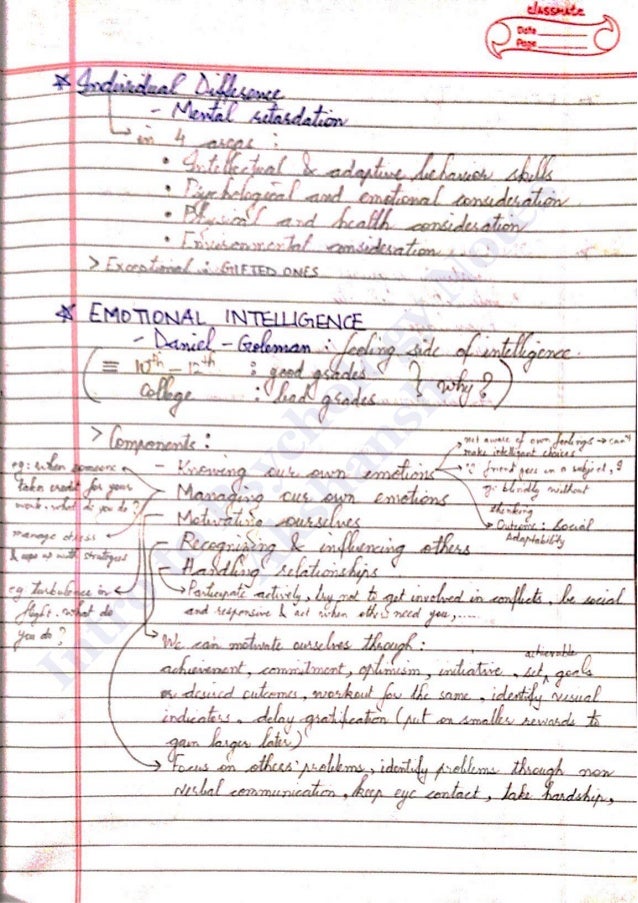 classmate
Date
Page
* Individual Difference
- Mental retardation
in 4 areas :
• Intellectual & adaptive behavior skills
• Psychological and emotional consideration
• Physical and health consideration
• Environmental consideration
> Exceptional : GIFTED ONES
* EMOTIONAL INTELLIGENCE
- Daniel - Goleman : feeling side of intelligence.
( ≡ 10th - 12th : good grades } why? )
College : bad grades
> Components :
- Knowing our own emotions
- Managing our own emotions
- Motivating ourselves
- Recognizing & influencing others
- Handling relationships
→ not aware of own feelings → can't
make intelligent choices
→ if friend goes in a subject, I
go blindly without
thinking
→ Outcome : Social
Adaptability
eg: when someone
takes credit for your
work. what do you do?
manage stress
& cope up with strategies
eg turbulence in
flight. what do
you do?
→ Participate actively, try not to get involved in conflicts, be social
and responsive & act when others need you, ....
→ We can motivate ourselves through :
achievement, commitment, optimism, initiative, set achievable goals
or desired outcomes, workout for the same, identify visual
indicators, delay gratification (put on smaller rewards to
gain larger later)
→ Focus on others' problems, identify problems through non
verbal communication, keep eye contact, take hardship,
Intro to Psychology Notes
Akshansh